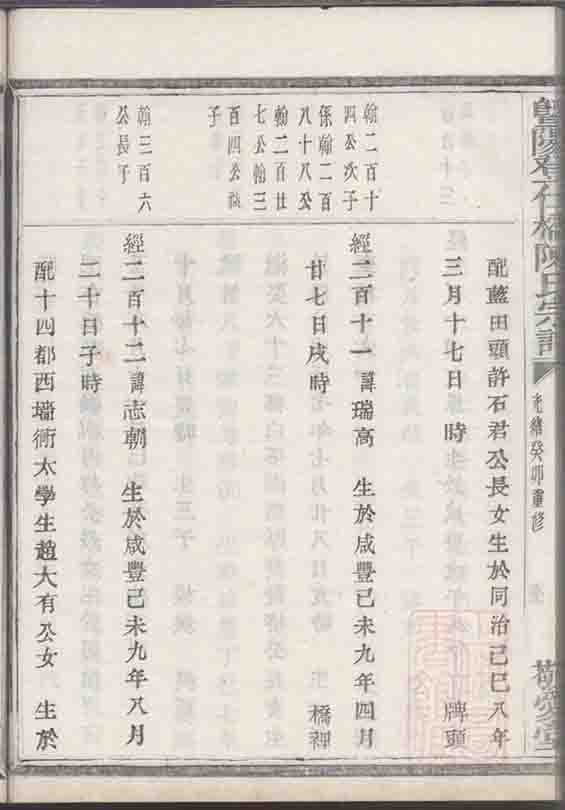 暨陽孝仁橋陳氏宗譜
光緒癸卯重修
敬愛堂
配藍田頭許石君公長女生於同治己巳八年
三月十七日 時 牌頭
翰二百十
四公次子
係翰二百
八十八公
翰二百廿
七公翰三
百四公祧
子
經二百十一諱瑞高 生於咸豐己未九年四月
廿七日戌時 橋裡
翰三百六
公長子
經二百十二諱志朝 生於咸豐己未九年八月
二十日子時
配十四都西墻衕太學生趙大有公女 生於